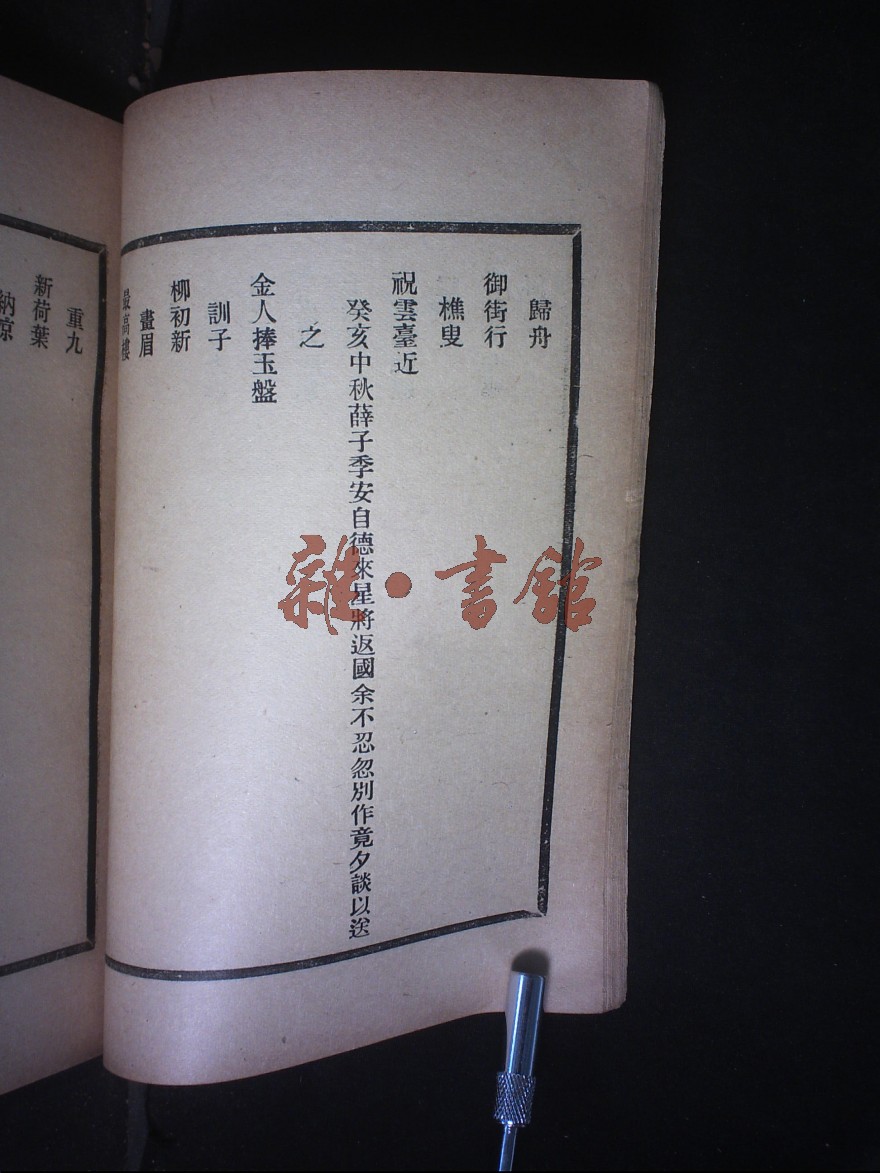 歸舟
御街行
樵叟
祝雲臺近
癸亥中秋薛子季安自德來星將返國余不忍忽別作竟夕談以送
之
金人捧玉盤
訓子
柳初新
畫眉
最高樓
重九
新荷葉
納凉
雜·書館